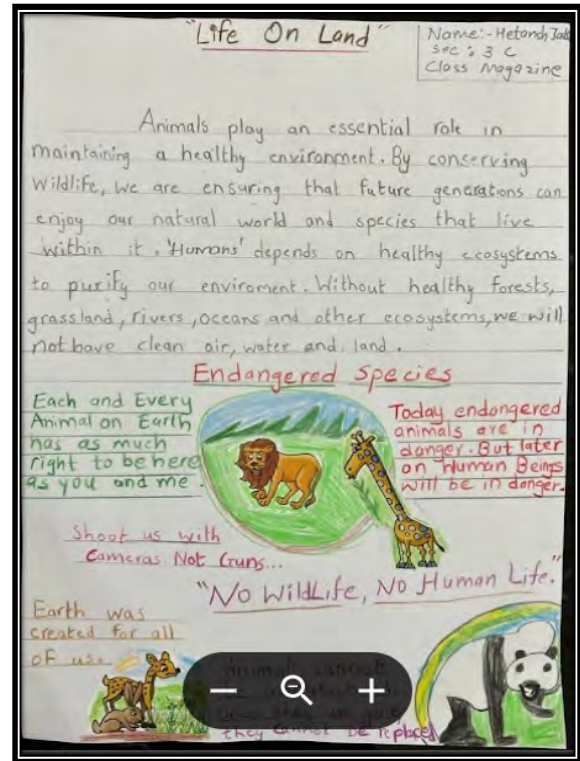 "Life On Land"
Name:- Hetansh
Sec : 3 C
Class Magazine
Animals play an essential role in
maintaining a healthy environment. By conserving
Wildlife, we are ensuring that future generations can
enjoy our natural world and species that live
within it. 'Humans' depends on healthy ecosystems
to purify our enviroment. Without healthy forests,
grassland, rivers, oceans and other ecosystems, we will
not have clean air, water and land.
Endangered Species
Each and Every
Animal on Earth
has as much
right to be here
as you and me.
Today endangered
animals are in
danger. But later
on Human Beings
will be in danger.
Shoot us with
Cameras Not Guns...
"No WildLife, No Human Life."
Earth was
created for all
of us
Animal cannot
they cannot be replaced